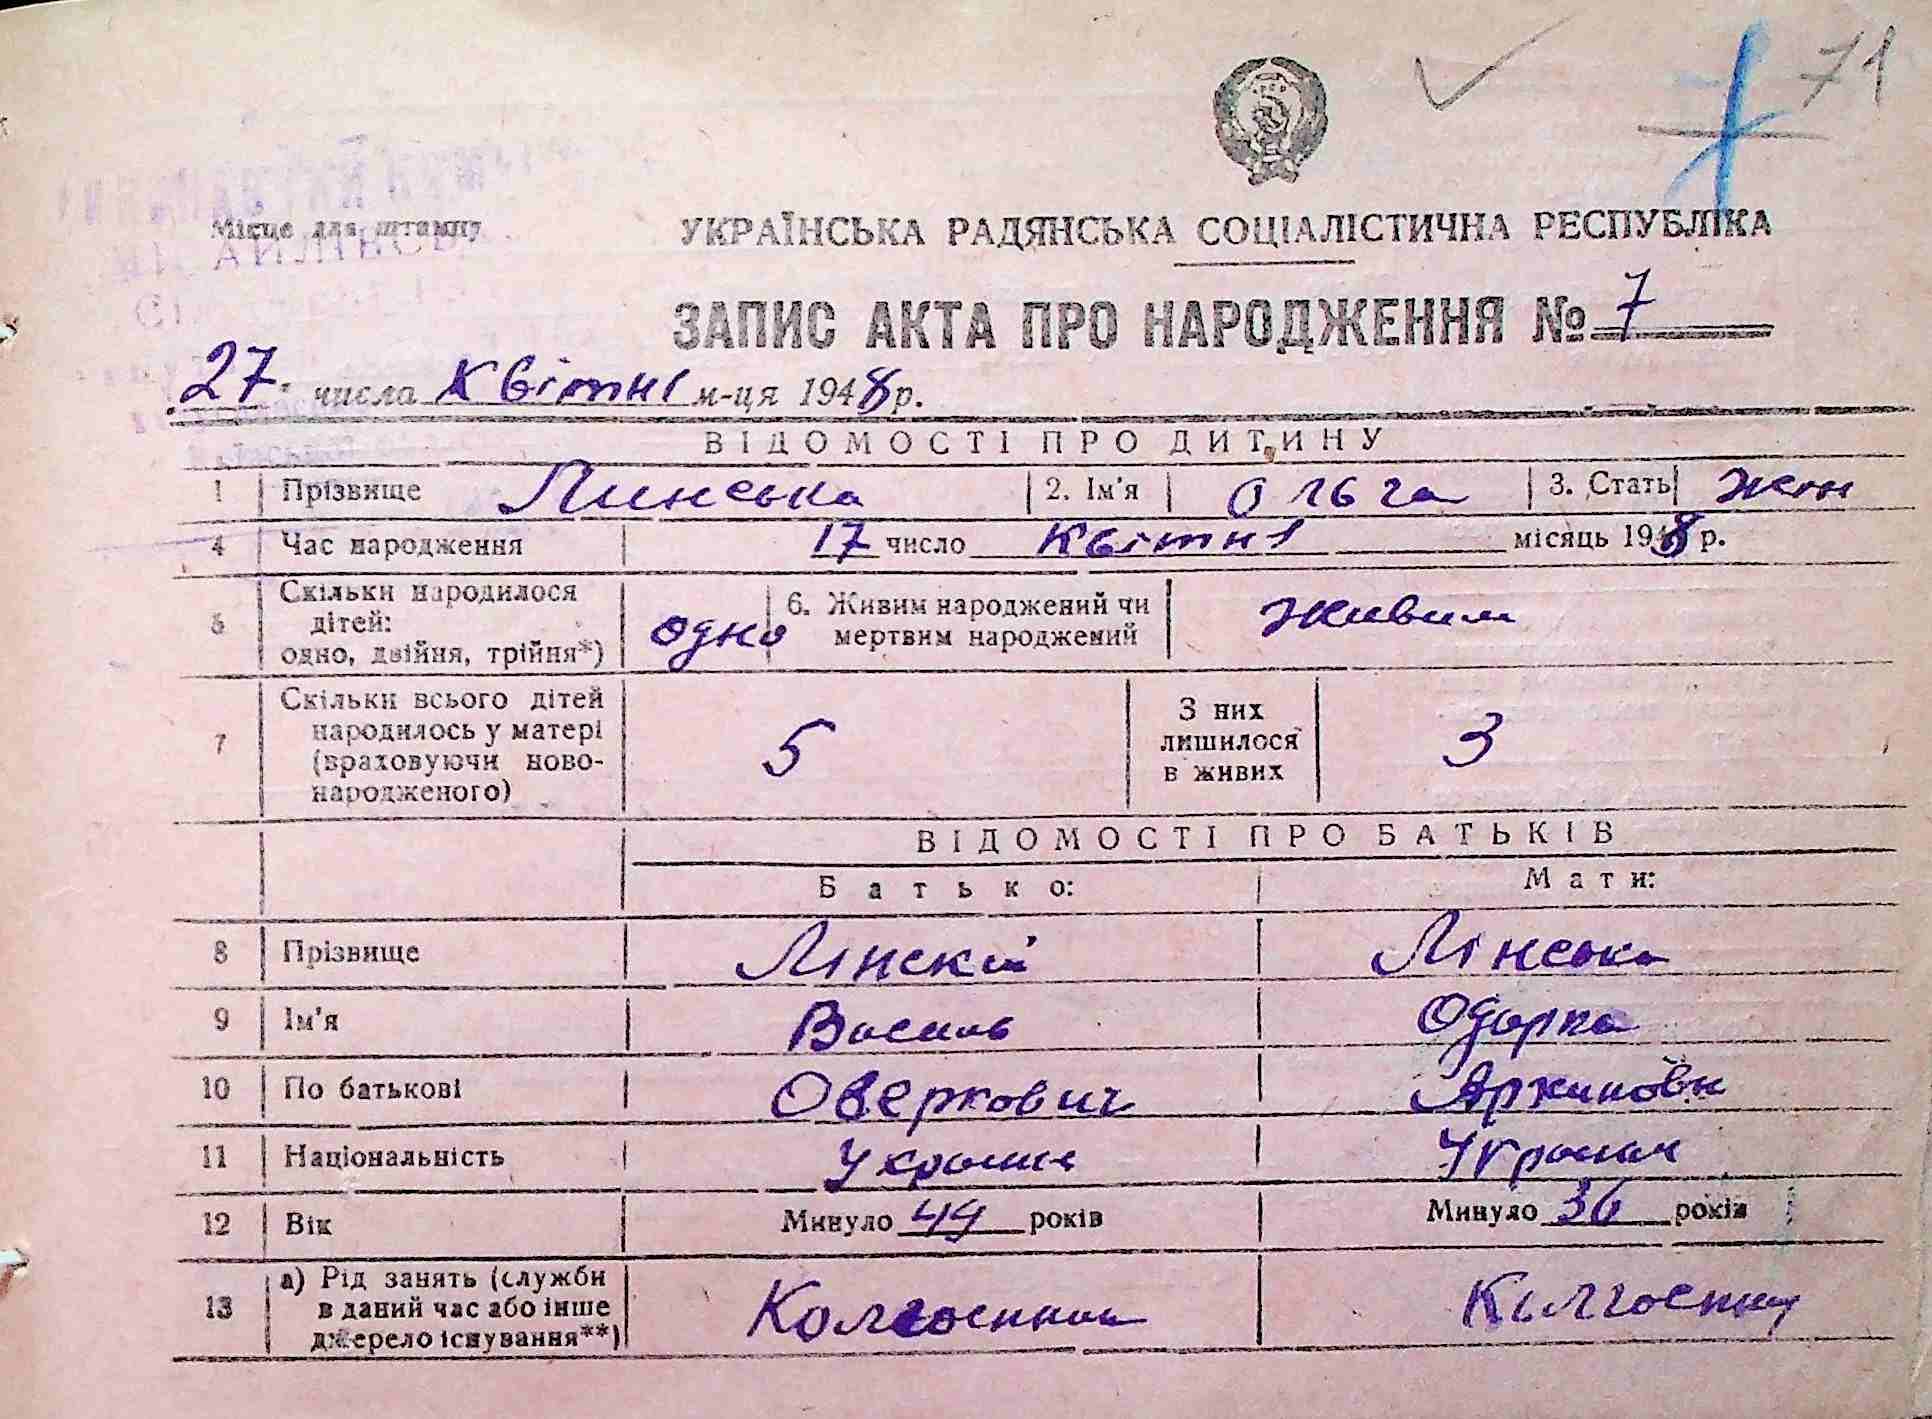 71
Місце для штампу
УКРАЇНСЬКА РАДЯНСЬКА СОЦІАЛІСТИЧНА РЕСПУБЛІКА
ЗАПИС АКТА ПРО НАРОДЖЕННЯ № 7
27 числа Квітня м-ця 1948 р.
ВІДОМОСТІ ПРО ДИТИНУ
1 Прізвище Линська 2. Ім'я Ольга 3. Стать жін
4 Час народження 17 число Квітня місяць 1948 р.
5 Скільки народилося дітей: одно, двійня, трійня*) одно 6. Живим народжений чи мертвим народжений живим
7 Скільки всього дітей народилось у матері (враховуючи новонародженого) 5 З них лишилося в живих 3
ВІДОМОСТІ ПРО БАТЬКІВ
Батько: Мати:
8 Прізвище Лінский Лінська
9 Ім'я Василь Одарка
10 По батькові Оверкович
11 Національність Українц Українк
12 Вік Минуло 44 років Минуло 36 років
13 а) Рід занять (служби в даний час або інше джерело існування**) Колгоспник Колгоспниц